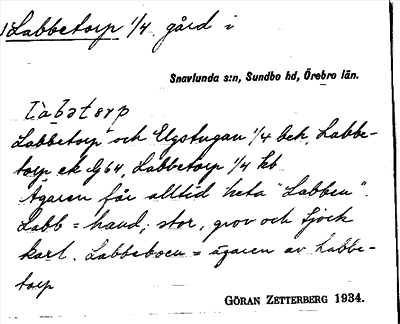 Labbetorp 1/4 gård i
Snavlunda s:n, Sundbo hd, Örebro län.
Làbətɘrp
Labbetorp och Elgstugan 1/4 bek, Labbe-
torp ek G64, Labbetorp 1/4 hb
Ägaren får alltid heta "Labben".
Labb = hand; stor, grov och tjock
karl. Labbeboen = ägaren av Labbe-
torp
GÖRAN ZETTERBERG 1934.